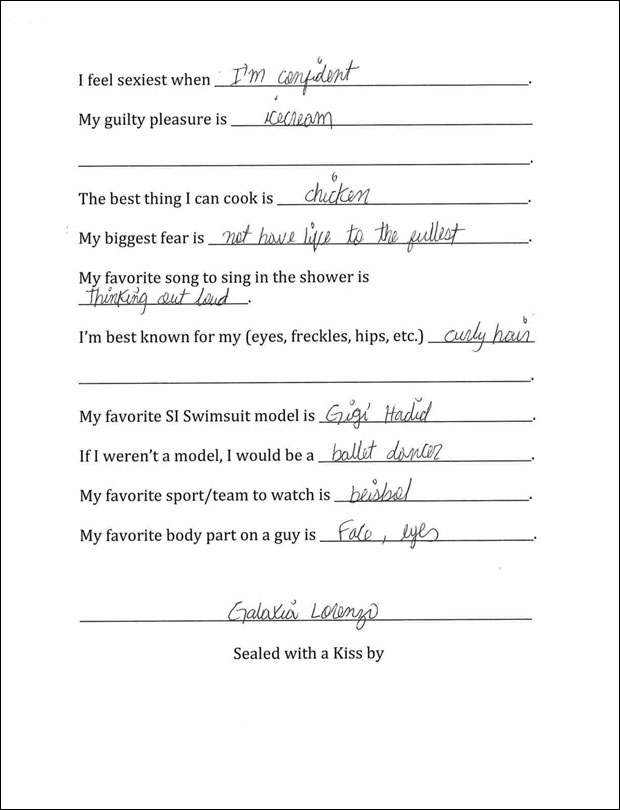 I feel sexiest when I'm confident.
My guilty pleasure is icecream
.
The best thing I can cook is chicken.
My biggest fear is not have life to the fullest.
My favorite song to sing in the shower is
Thinking out loud.
I'm best known for my (eyes, freckles, hips, etc.) curly hair
.
My favorite SI Swimsuit model is Gigi Hadid.
If I weren't a model, I would be a ballet dancer.
My favorite sport/team to watch is beisbol.
My favorite body part on a guy is Face, eyes.
Galaxia Lorenzo
Sealed with a Kiss by